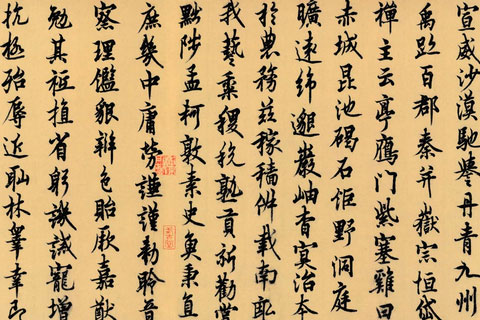 宣威沙漠馳譽丹青九州
禹跡百郡秦并嶽宗恒岱
禪主云亭鴈門紫塞雞田
赤城昆池碣石鉅野洞庭
曠遠綿邈巖岫杳冥治本
於農務茲稼穡俶載南畝
我藝黍稷稅熟貢新勸賞
黜陟孟軻敦素史魚秉直
庶幾中庸勞謙謹勑聆音
察理鑑貌辨色貽厥嘉猷
勉其祗植省躬譏誡寵增
抗極殆辱近耻林皋幸即